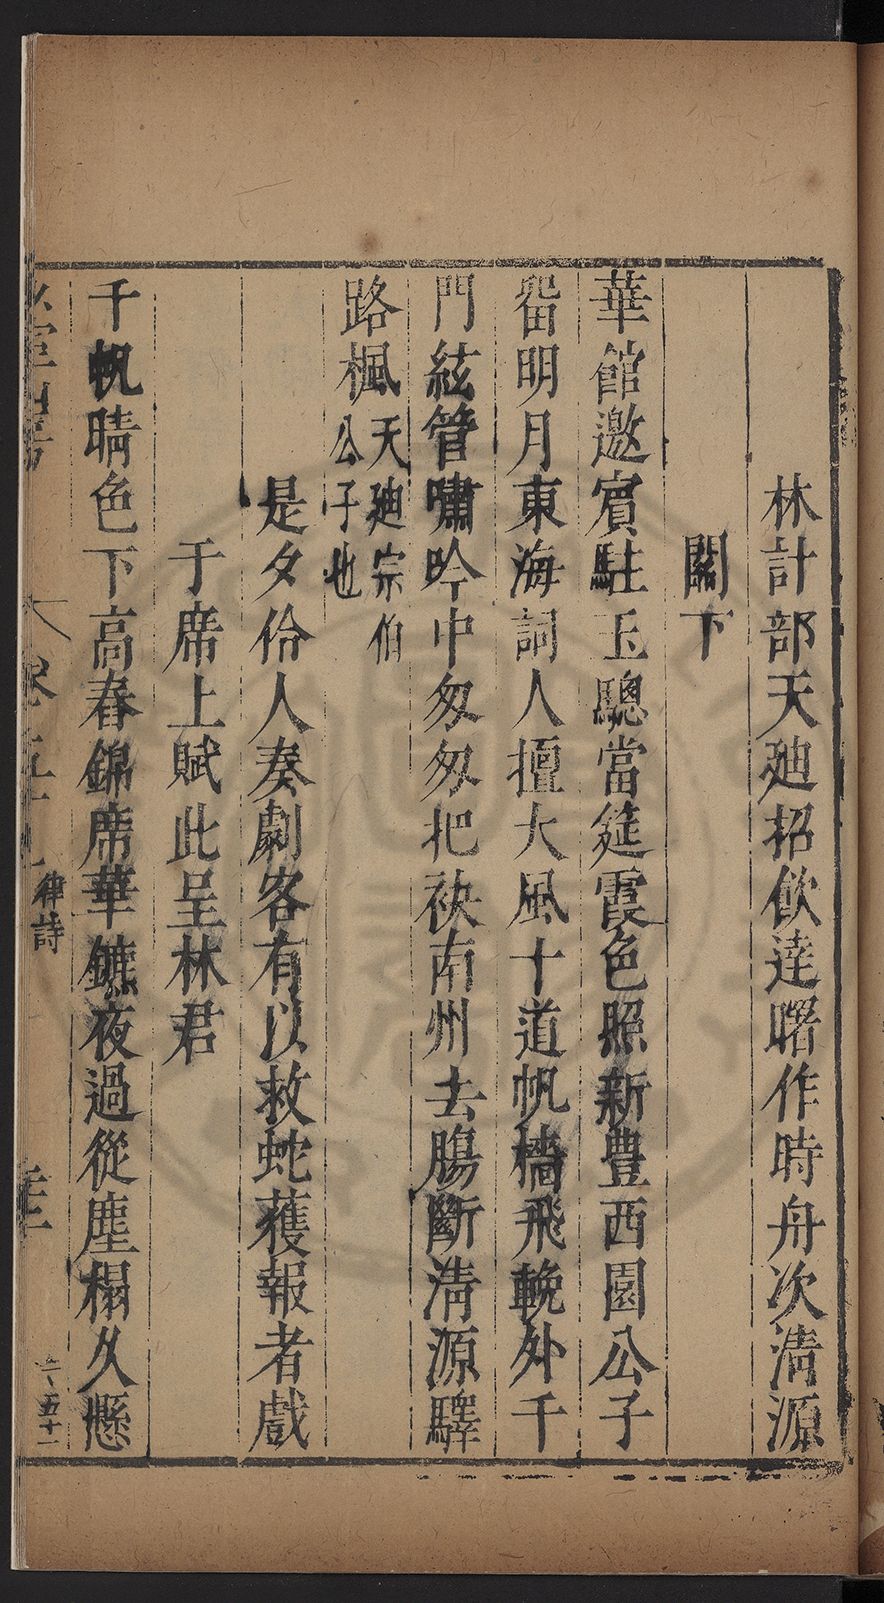 林計部天廸招飲逹曙作時舟次清源
閣下
華館邀賓駐玉驄當筵霞色照新豊西園公子
畱明月東海詞人擅大風十道帆檣飛輓外千
門絃管嘯吟中匆匆把袂南州去腸斷淸源驛
路楓天廸宗伯
公子也
是夕伶人奏劇客有以救蛇獲報者戲
于席上賦此呈林君
千帆晴色下高舂錦席華鑣夜過從塵榻久懸
律詩